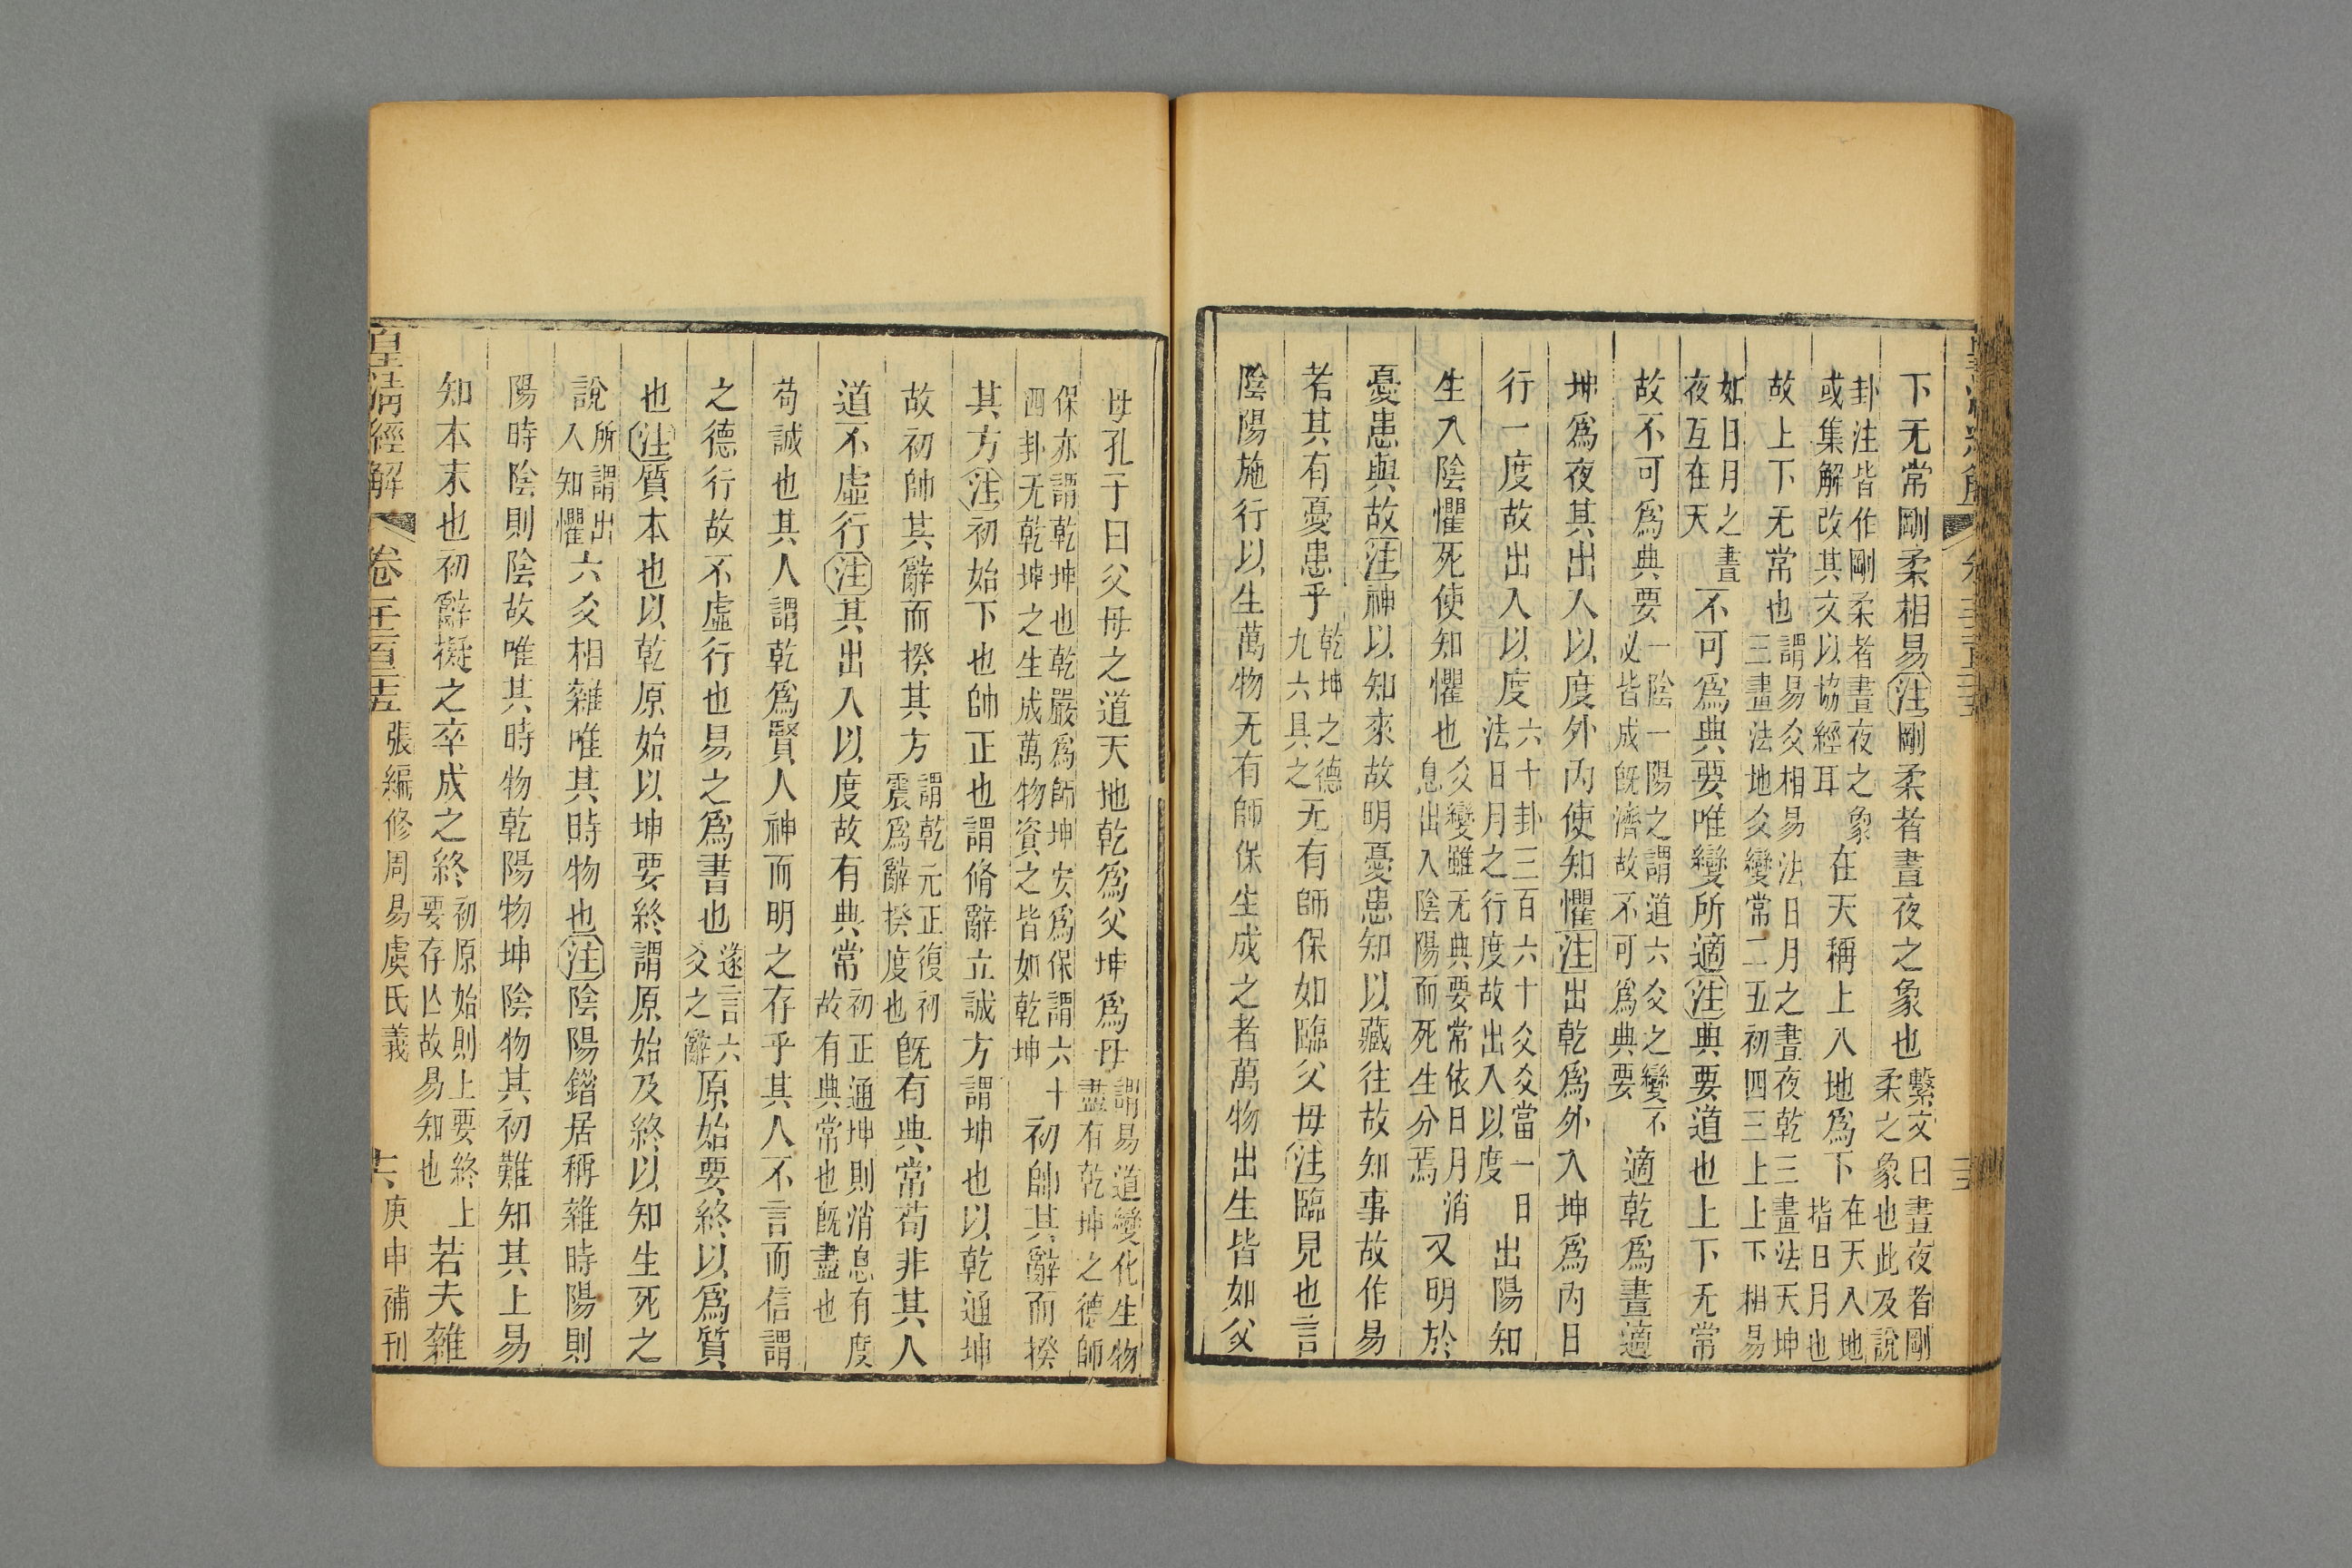 下无常剛柔相易注剛柔者晝夜之象也繫文曰晝夜者剛柔之象也此及說
卦注皆作剛柔者晝夜之象或集解改其文以協經耳在天稱上入地爲下在天入地指日月也
故上下无常也謂易爻相易法日月之晝夜乾三畫法天坤三畫法地爻變常二五初四三上上下相易
如日月之晝夜互在天不可爲典要唯變所適注典要道也上下无常
故不可爲典要一陰一陽之謂道六爻之變不必皆成旣濟故不可爲典要適乾爲晝適
坤爲夜其出入以度外內使知懼注出乾爲外入坤爲內日
行一度故出入以度六十卦三百六十爻爻當一日法日月之行度故出入以度出陽知
生入陰懼死使知懼也爻變雖无典要常依日月消息出入陰陽而死生分焉又明於
憂患與故注神以知來故明憂患知以藏往故知事故作易
者其有憂患乎乾坤之德九六具之无有師保如臨父母注臨見也言
陰陽施行以生萬物无有師保生成之者萬物出生皆如父
母孔子曰父母之道天地乾爲父坤爲母謂易道變化生物盡有乾坤之德師
保亦謂乾坤也乾嚴爲師坤安爲保謂六十四卦无乾坤之生成萬物資之皆如乾坤初帥其辭而揆
其方注初始下也帥正也謂脩辭立誠方謂坤也以乾通坤
故初帥其辭而揆其方謂乾元正復初震爲辭揆度也旣有典常苟非其人
道不虛行注其出入以度故有典常初正通坤則消息有度故有典常也旣盡也
苟誠也其人謂乾爲賢人神而明之存乎其人不言而信謂
之德行故不虛行也易之爲書也遂言六爻之辭原始要終以爲質
也注質本也以乾原始以坤要終謂原始及終以知生死之
說所謂出入知懼六爻相雜唯其時物也注陰陽錯居稱雜時陽則
陽時陰則陰故唯其時物乾陽物坤陰物其初難知其上易
知本末也初辭擬之卒成之終初原始則上要終上要存亾故易知也若夫雜
皇淸經解 張編修周易虞氏義 庚申補刊